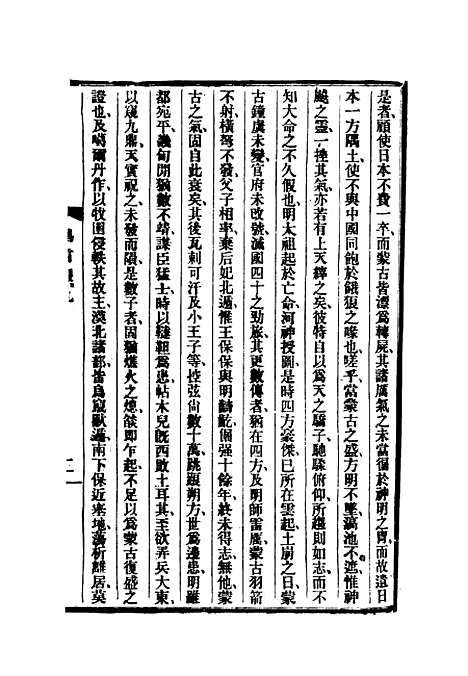 是者、顧使日本不費一卒、而蒙古皆漂爲轉屍、其諸厲氣之未當、復於神明之胄、而故遣日
本一方隅土、使不與中國同飽於餓狼之喙也、嗟乎、當蒙古之盛、方明不墜、滈池不遮、惟神
颷之靈、一挫其氣、亦若有上天綷之矣、彼特自以爲天之驕子、馳驟俯仰、所趨則如志、而不
知大命之不久假也、明太祖起於亡命、河神授圖、是時四方豪傑、已所在雲起、土崩之日、蒙
古鐘虡未變、官府未改號、滅國四十之勁旅、其更數傳者、猶在四方、及明師雷厲、蒙古羽箭
不射、橫弩不發、父子相率棄后妃北遁、惟王保保與明齮齕、倔强十餘年、終未得志、無他、蒙
古之氣、固自此衰矣、其後瓦剌可汗及小王子等、控弦尙數十萬、跳踉朔方、世爲邊患、明雖
都宛平、畿甸閒猶數不靖、謀臣猛士、時以韃靼爲患、帖木兒旣西敗土耳其、至欲弄兵大東、
以窺九鼎、天實祝之、未發而隕、是數子者、固猶爝火之熄、欻卽乍起、不足以爲蒙古復盛之
證也、及噶爾丹作、以牧圉侵軼其故主、漠北諸部、皆鳥竄獸遁、南下保近塞地、蕩析離居、莫